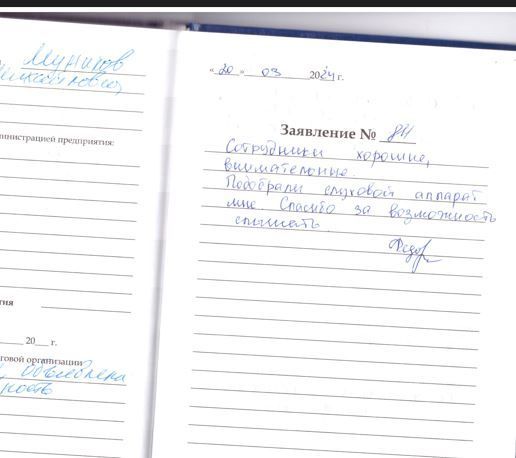 Мунипов
министрацией предприятия:
тия
20___ г.
говой организации
Объявлена
ность
« 20 » 03 2024 г.
Заявление № 84
Сотрудники хорошие,
внимательные.
Подобрали слуховой аппарат
мне. Спасибо за возможность
слышать.
Федор